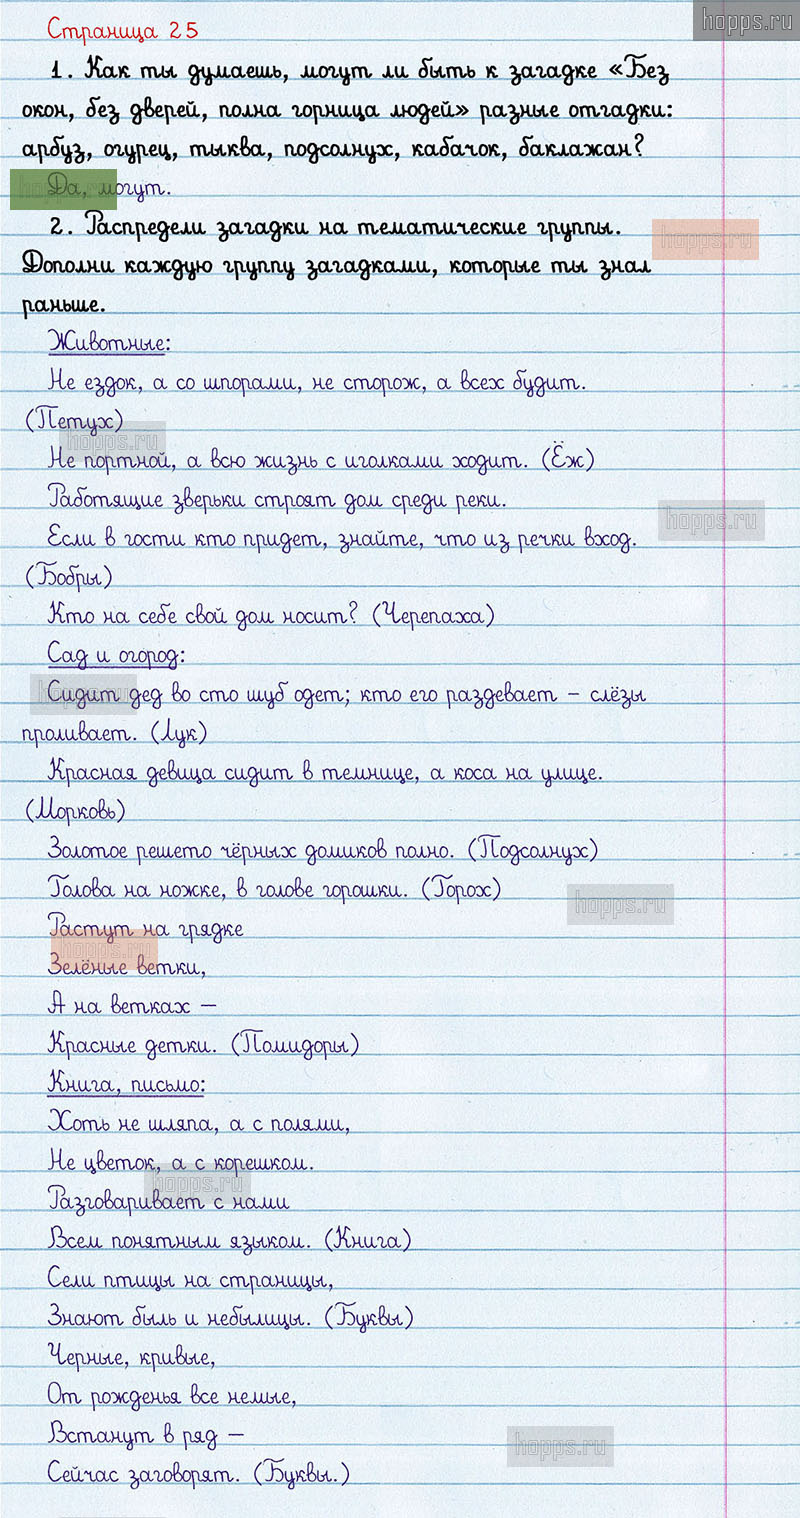 hopps.ru
Страница 25
1. Как ты думаешь, могут ли быть к загадке «Без
окон, без дверей, полна горница людей» разные отгадки:
арбуз, огурец, тыква, подсолнух, кабачок, баклажан?
Да, могут.
hopps.ru
2. Распредели загадки на тематические группы.
hopps.ru
Дополни каждую группу загадками, которые ты знал
раньше.
Животные:
Не ездок, а со шпорами, не сторож, а всех будит.
(Петух)
hopps.ru
Не портной, а всю жизнь с иголками ходит. (Ёж)
Работящие зверьки строят дом среди реки.
hopps.ru
Если в гости кто придет, знайте, что из речки вход.
(Бобры)
Кто на себе свой дом носит? (Черепаха)
Сад и огород:
Сидит дед во сто шуб одет; кто его раздевает – слёзы
hopps.ru
проливает. (Лук)
Красная девица сидит в темнице, а коса на улице.
(Морковь)
Золотое решето чёрных домиков полно. (Подсолнух)
Голова на ножке, в голове горошки. (Горох)
hopps.ru
Растут на грядке
hopps.ru
Зелёные ветки,
А на ветках —
Красные детки. (Помидоры)
Книга, письмо:
Хоть не шляпа, а с полями,
Не цветок, а с корешком.
hopps.ru
Разговаривает с нами
Всем понятным языком. (Книга)
Сели птицы на страницы,
Знают быль и небылицы. (Буквы)
Черные, кривые,
От рожденья все немые,
Встанут в ряд —
hopps.ru
Сейчас заговорят. (Буквы.)